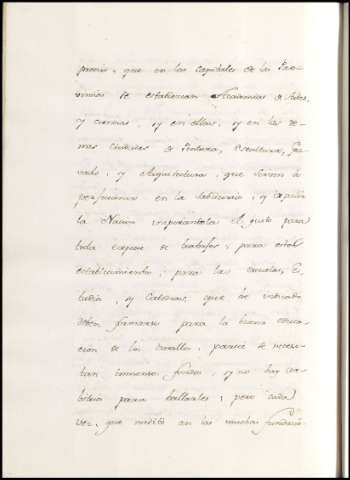 premio, que en las Capitales de las Pro-
vincias se establezcan Academias de Artes,
y ciencias, y en ellas, y en las de-
mas Ciudades de Pintura, Escultura, Gra-
vado, y Arquitectura, que sirvan á
perfeccionar en la
la Nacion el gusto para
toda especie de trabajos; para estos
establecimientos; para las escuelas, Es-
tudios, y Catedras, que he indicado
deben formarse para la buena educa-
cion de los vasallos, parece se necesi-
tan inmensos fondos, y no hay ca-
para hallarles; pero cada
vez, que medito en las muchas fundacio-